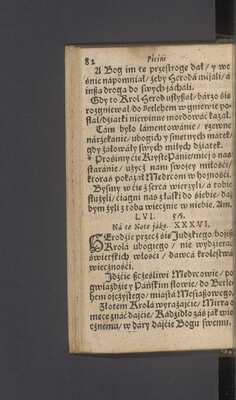 82 Pieśni
A Bog im tę przestrogę dał / y we
śnie napomniał / żeby Heroda mijali / a
inszą drogą do swych jachali.
Gdy to Krol Herod usłyszał / barzo się
rozgniewał / do Betlehem w gniewie po-
słał / dziatki niewinne mordować kazał.
Tam było lamentowanie / rzewne
narzekanie / ubogich y smętnych matek /
gdy żałowały swych miłych dziatek.
Prosimy cię Krystę Panie / miej o nas
staranie / użycz nam swojej miłości /
ktorąś pokazał Medrcom w hojności.
Byśmy w cię z serca wierzyli / a tobie
służyli / ciągni nas z łaski do siebie / da-
bym żyli z tobą wiecznie w niebie. Am.
LVI. 56.
Na tę Notę jako. XXXVI.
HErodzie przecz się Judskiego / boisz
Krola ubogiego / nie wydziera
świetskich włości / dawca krolestwa
wieczności.
Idźcie szczęśliwi Medrcowie / po
gwiaździe y Pańskim słowie / do Betle-
hem ojczystego / miasta Messiaszowego.
Złotem Krola wyrażajcie / Mirrą o
męce znać dajcie / Kadzidło zaś jak wie-
cznemu / w dary dajcie Bogu swemu.